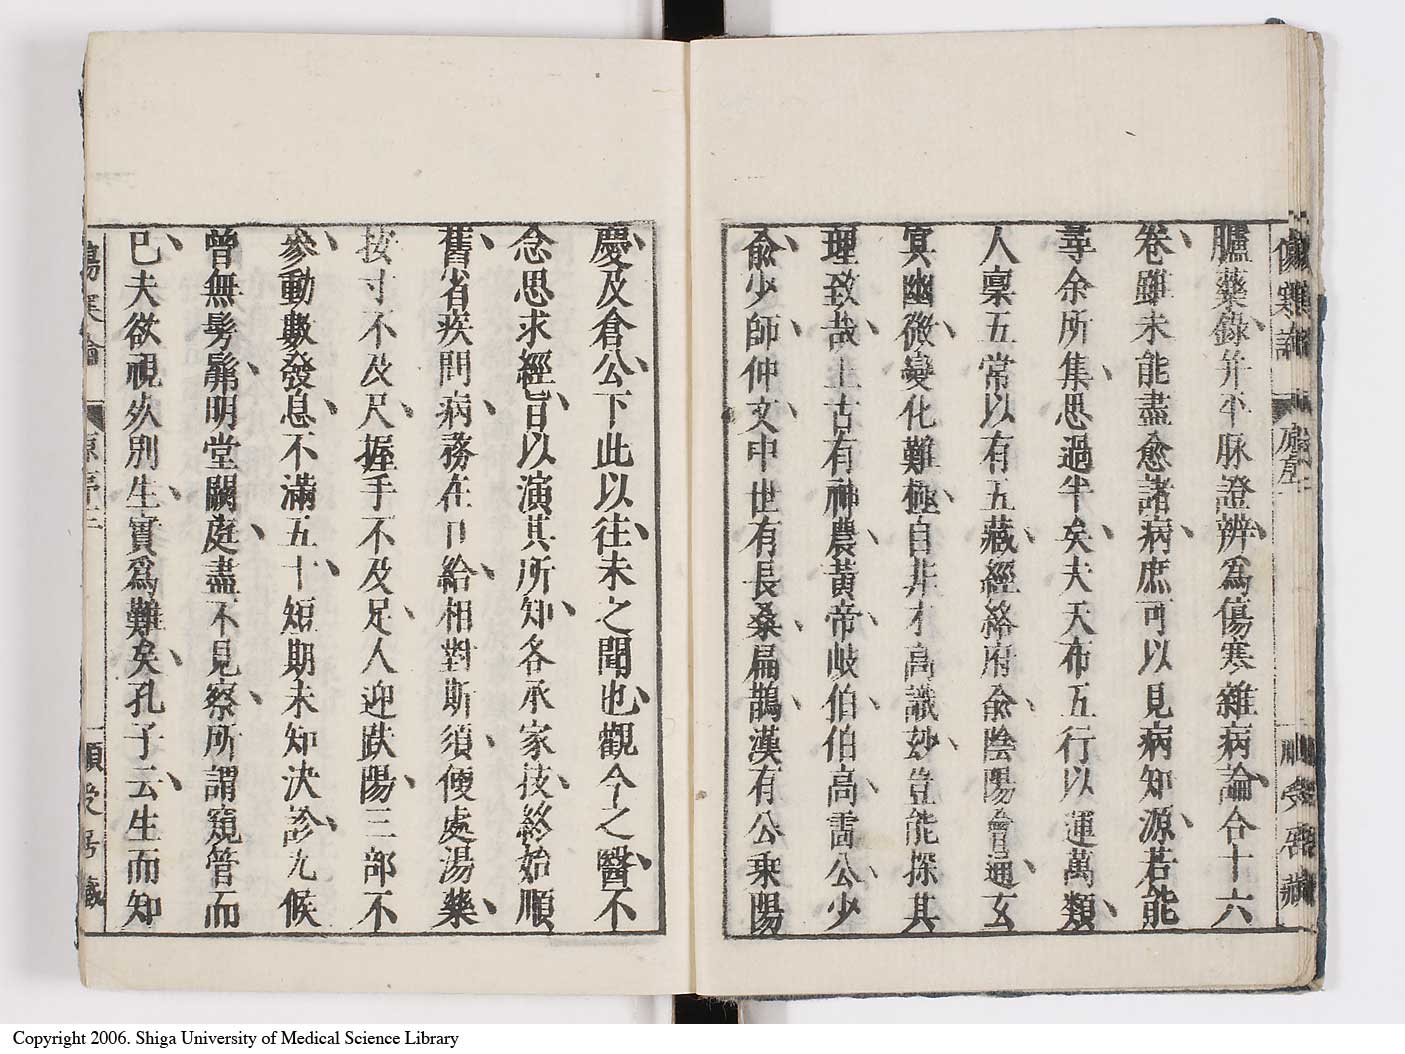 臚藥錄并平脉證辨爲傷寒雜病論合十六
卷雖未能盡愈諸病庶可以見病知源若能
尋余所集思過半矣夫天布五行以運萬類
人稟五常以有五藏經絡府兪陰陽會通玄
冥幽微變化難極自非才高識妙豈能探其
理致哉上古有神農黃帝岐伯伯高雷公少
兪少師仲文中世有長桑扁鵲漢有公乘陽
慶及倉公下此以往未之聞也觀今之醫不
念思求經旨以演其所知各承家技終始順
舊省疾問病務在口給相對斯須便處湯藥
按寸不及尺握手不及足人迎趺陽三部不
參動數發息不滿五十短期未知決診九候
曾無髣髴明堂闕庭盡不見察所謂窺管而
已夫欲視死別生實爲難矣孔子云生而知
Copyright 2006. Shiga University of Medical Science Library